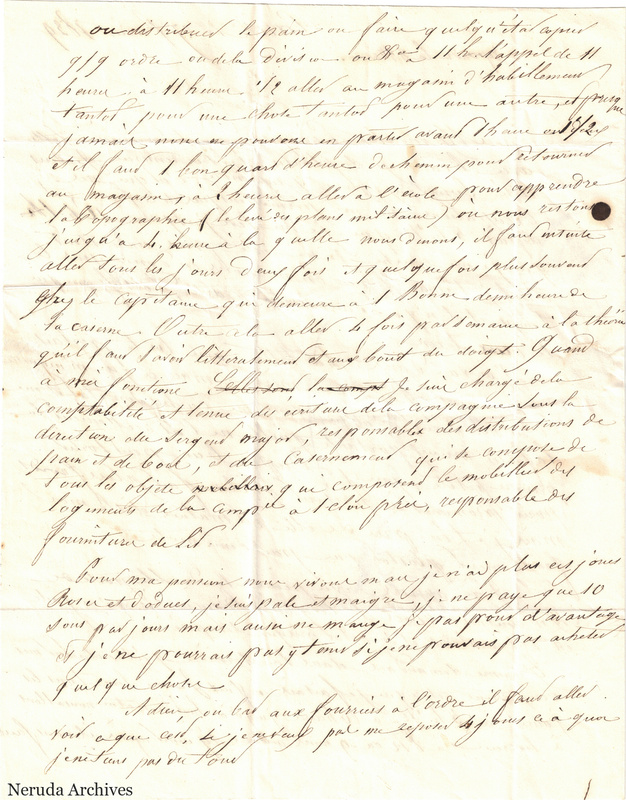 ou distribuer le pain ou faire quelqu'état copier
ordre ou de la division ou à 11 h. l'appel de 11
heure, à 11 heure 1/2 aller au magasin d'habillement
tantot pour une chose tantot pour une autre, et presque
jamais nous ne pouvons en partir avant 1 heure ou 1 1/2
et il faud 1 bon quart d'heure de chemin pour retourner
au magasin, à 2 heure aller à l'école pour apprendre
la Topographie (le levé des plans militaire) où nous restons
jusqu'a 4 heure à la quelle nous dinons, il faud ensuite
aller tous les jours deux fois et quelque fois plus souvend
chez le capitaine qui demeure à 1 Bonne demi heure de
la caserne. Outre cela aller 4 fois par semaine à la théorie
qu'il faud savoir litteralement et aux bout du doigt. Quand
à mes fonctions Je suis chargé de la
comptabilité et tenue des écriture de la compagnie sous la
direction du sergend major, responsable des distributions de
pain et de bois, et du Casernement qui se compose de
tous les objets qui composend le mobillier des
logements de la comp.ie à 1 clou près, responsable des
fourniture de Lit.
Pour ma pension nous vivons mais je n'ai plus ces joues
Roses et dodues, je suis pale et maigre, je ne paye que 10
sous par jours mais aussi ne mange j'e pas pour d'avantage
Et je ne pourrais pas y tenir si je ne pouvais pas acheter
quelque chose
Adieu, on bat aux fourriers à l'ordre il faud aller
voir ce que c'est, Si je ne veux pas me reposer 4 jours ce à quoi
je ne tiens pas du tout
Neruda Archives